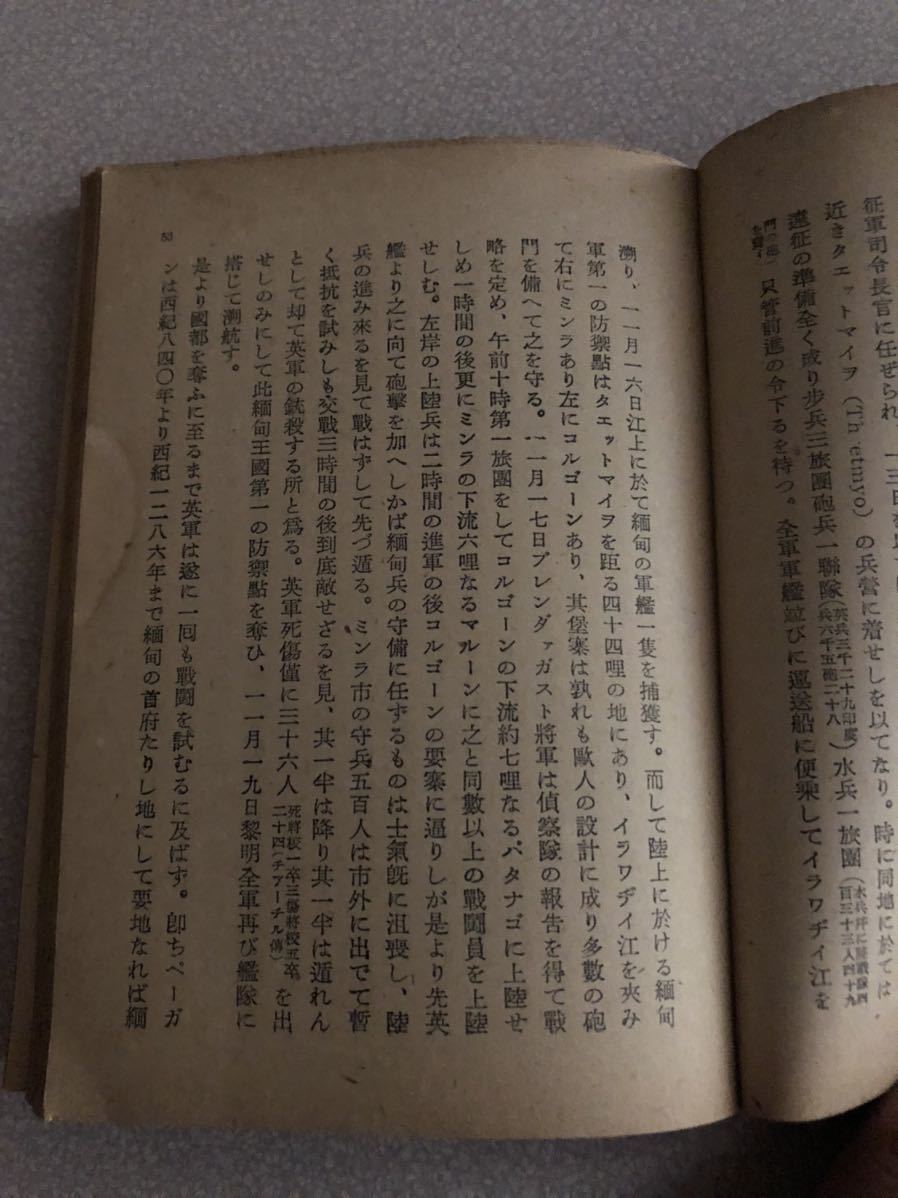 征軍司令長官に任ぜられ
近きタエットマイヲ（Th etmyo）の兵營に着せしを以てなり。時に同地に於ては
遠征の準備全く成り步兵三旅團砲兵一聯隊（英兵三千二十九印度兵六千五砲二十八）水兵一旅團
只管前進の令下るを待つ。全軍軍艦竝びに運送船に便乘してイラワヂイ江を
溯り、一一月一六日江上に於て緬甸の軍艦一隻を捕獲す。而して陸上に於ける緬甸
軍第一の防禦點はタエットマイヲを距る四十四哩の地にあり、イラワヂイ江を夾み
て右にミンラあり左にコルゴーンあり、其堡寨は孰れも歐人の設計に成り多數の砲
門を備へて之を守る。一一月一七日プレンダァガスト將軍は偵察隊の報告を得て戰
略を定め、午前十時第一旅團をしてコルゴーンの下流約七哩なるパタナゴに上陸せ
しめ一時間の後更にミンラの下流六哩なるマルーンに之と同數以上の戰鬪員を上陸
せしむ。左岸の上陸兵は二時間の進軍の後コルゴーンの要寨に逼りしが是より先英
艦より之に向て砲擊を加へしかば緬甸兵の守備に任ずるものは士氣旣に沮喪し、陸
兵の進み來るを見て戰はずして先づ遁る。ミンラ市の守兵五百人は市外に出でて暫
く抵抗を試みしも交戰三時間の後到底敵せざるを見、其一半は降り其一半は遁れん
として却て英軍の銃殺する所と爲る。英軍死傷僅に三十六人（死將校一卒三傷將校五卒二十四（チァーチル傳）を出
せしのみにして此緬甸王國第一の防禦點を奪ひ、一一月一九日黎明全軍再び艦隊に
搭じて溯航す。
是より國都を奪ふに至るまで英軍は遂に一囘も戰鬪を試むるに及ばず。卽ちペーガ
ンは西紀八四〇年より西紀一二八六年まで緬甸の首府たりし地にして要地なれば緬
53